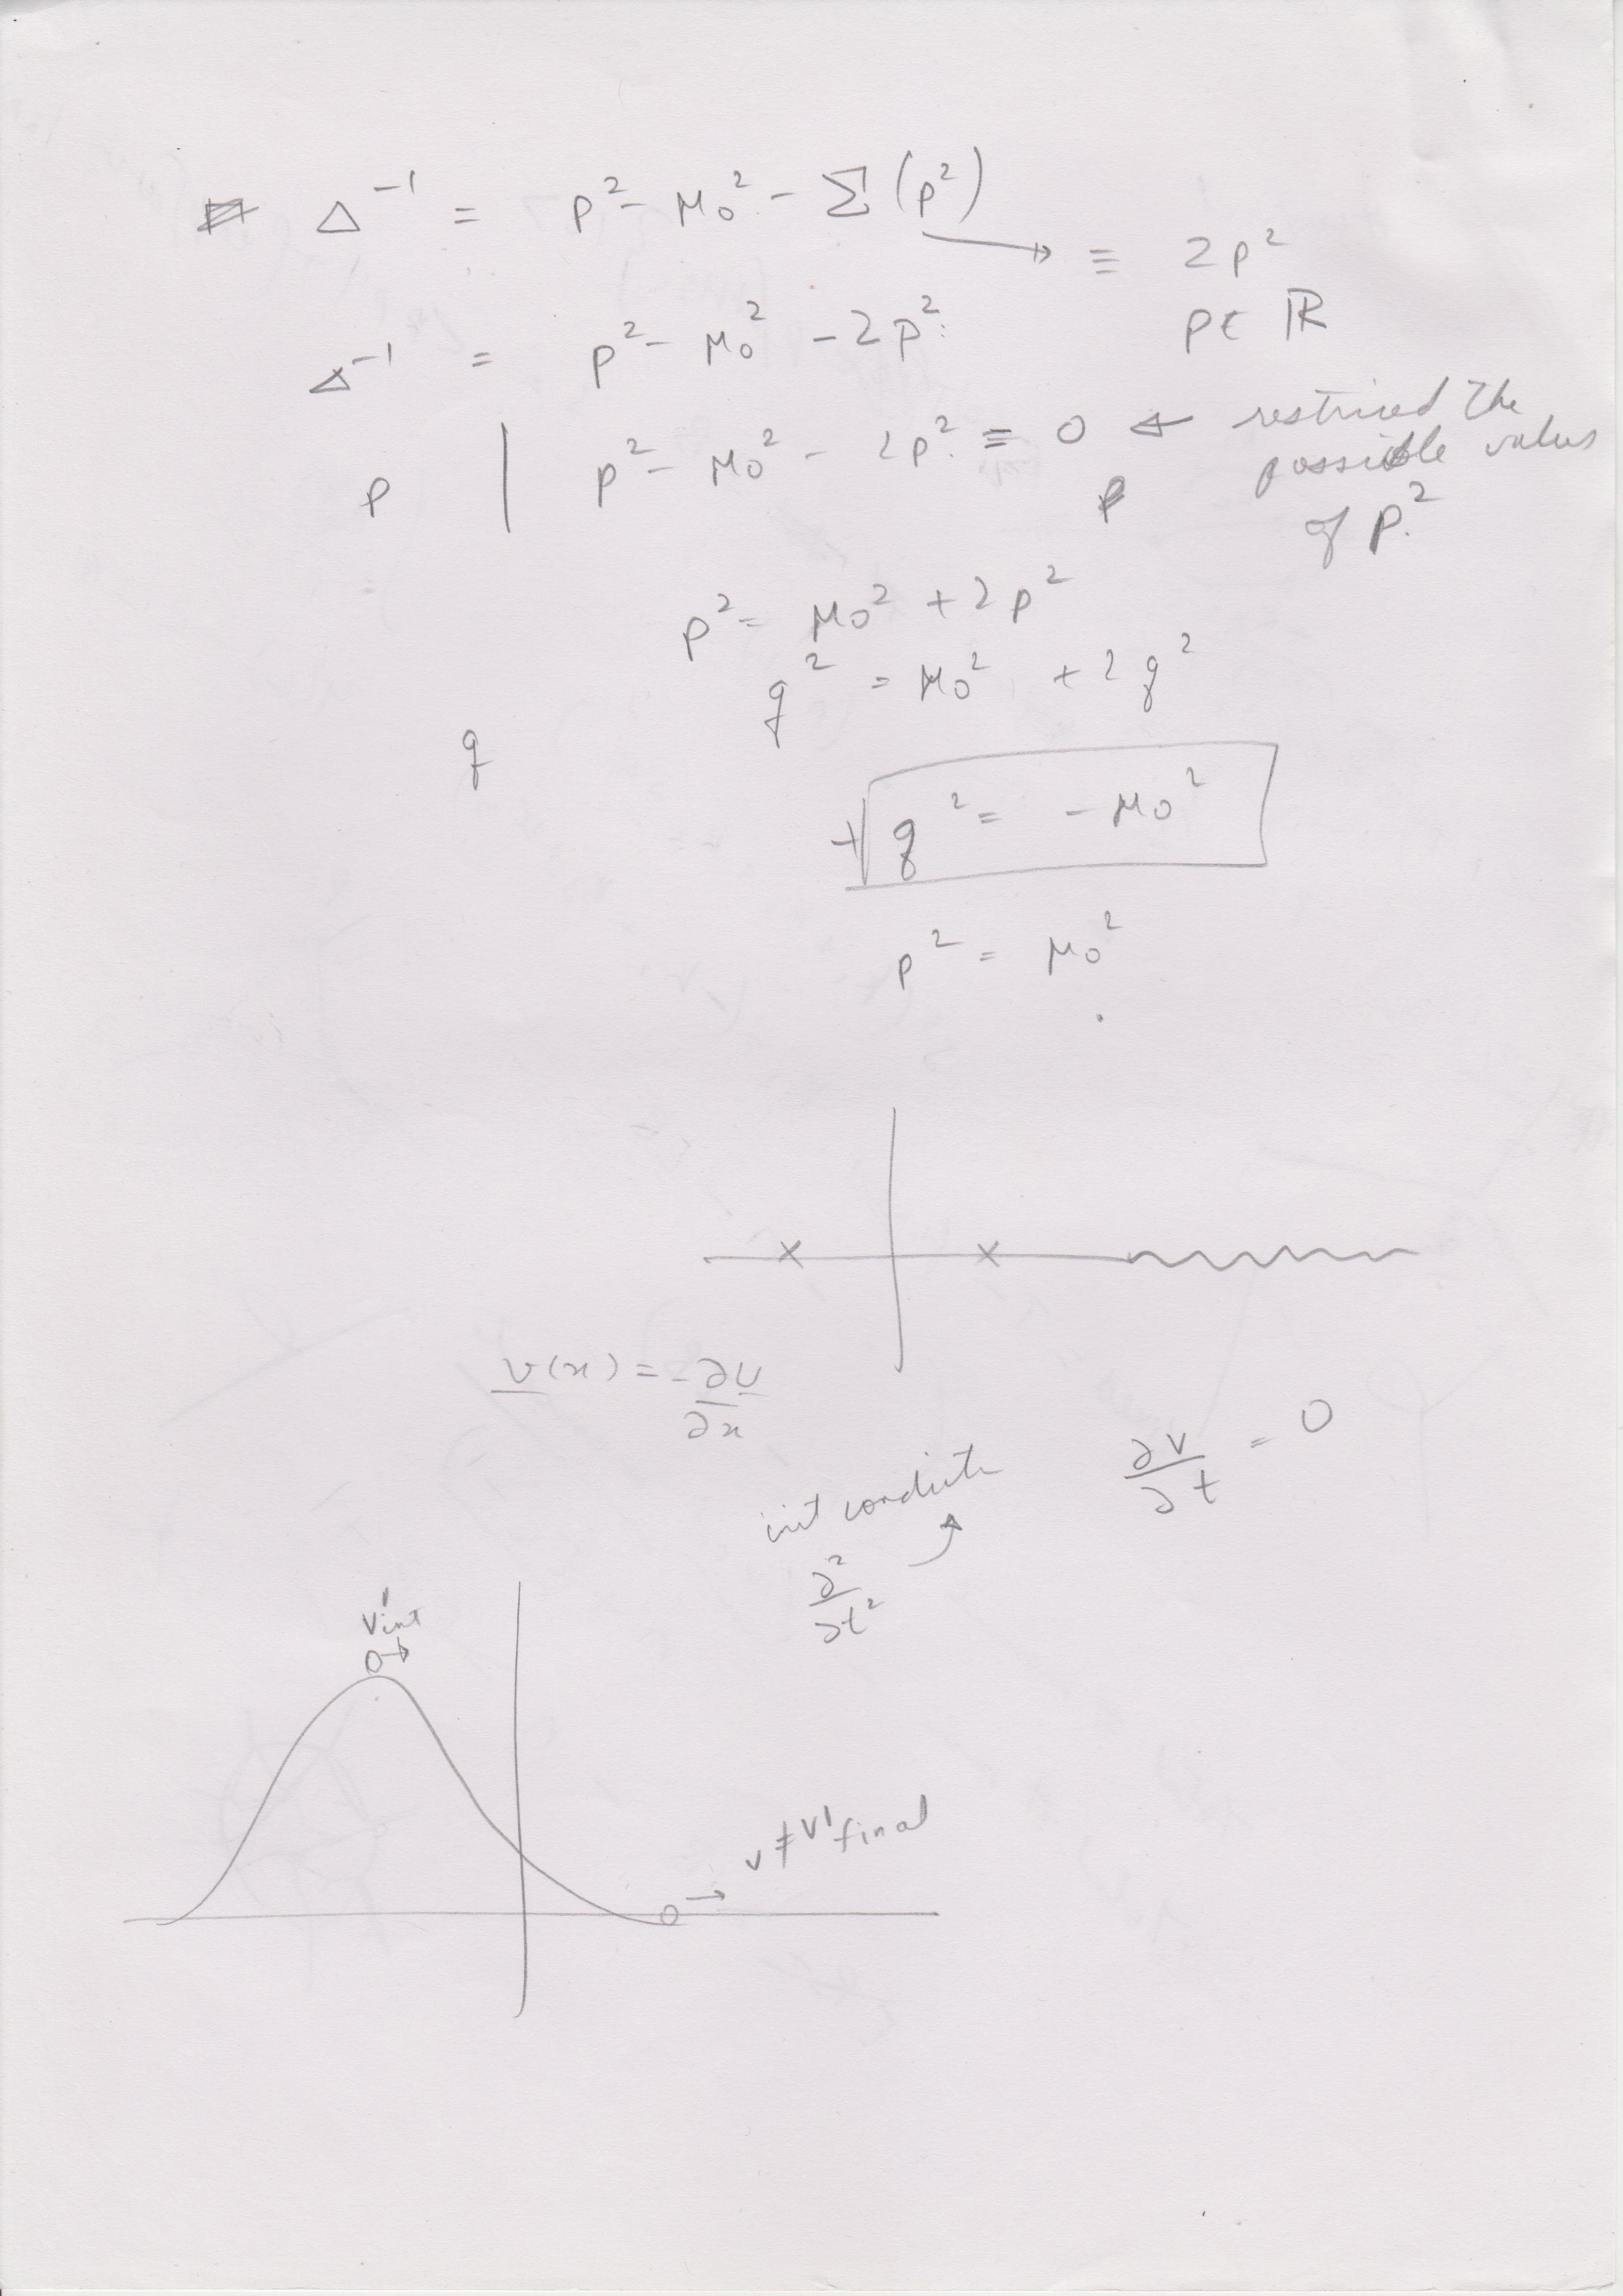 Δ⁻¹ = p² - μ₀² - Σ(p²)
≡ 2p²
p ∈ ℝ
Δ⁻¹ = p² - μ₀² - 2p²
p | p² - μ₀² - 2p² ≡ 0 ← restriced the
possible values
of p²
p² = μ₀² + 2p²
q² = μ₀² + 2q²
q
q² = - μ₀²
p² = μ₀²
v(x) = - ∂U/∂x
∂V/∂t = 0
init
∂²/∂t²
v'int
v ≠ v'final